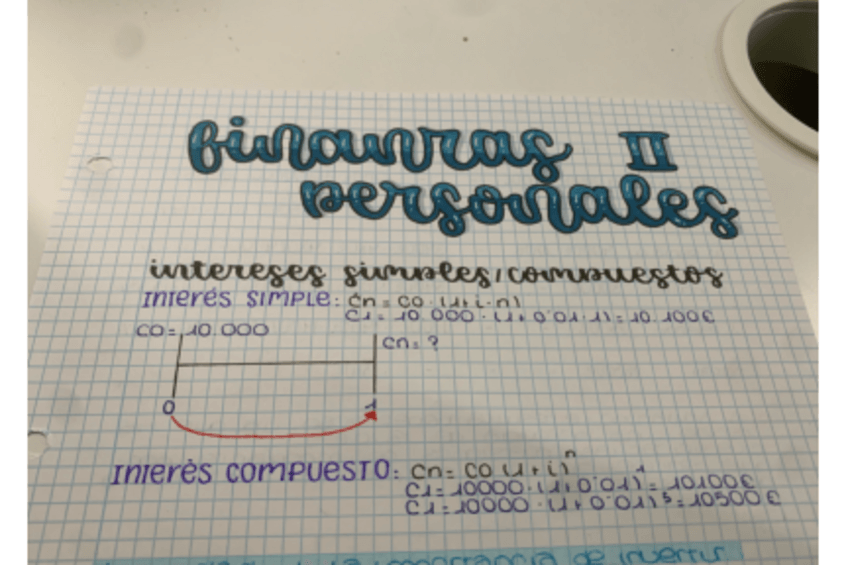 finanzas II
personales
intereses simples/compuestos
INTERÉS SIMPLE: Cn = CO · (1+i·n)
C1 = 10.000 · (1+0'01·1) = 10.100€
CO = 10.000
Cn = ?
0 1
INTERÉS COMPUESTO: Cn = CO (1+i)^n
C1 = 10000 · (1+0'01)^1 = 10100€
C1 = 10000 · (1+0'01)^5 = 10500€
importancia de invertir